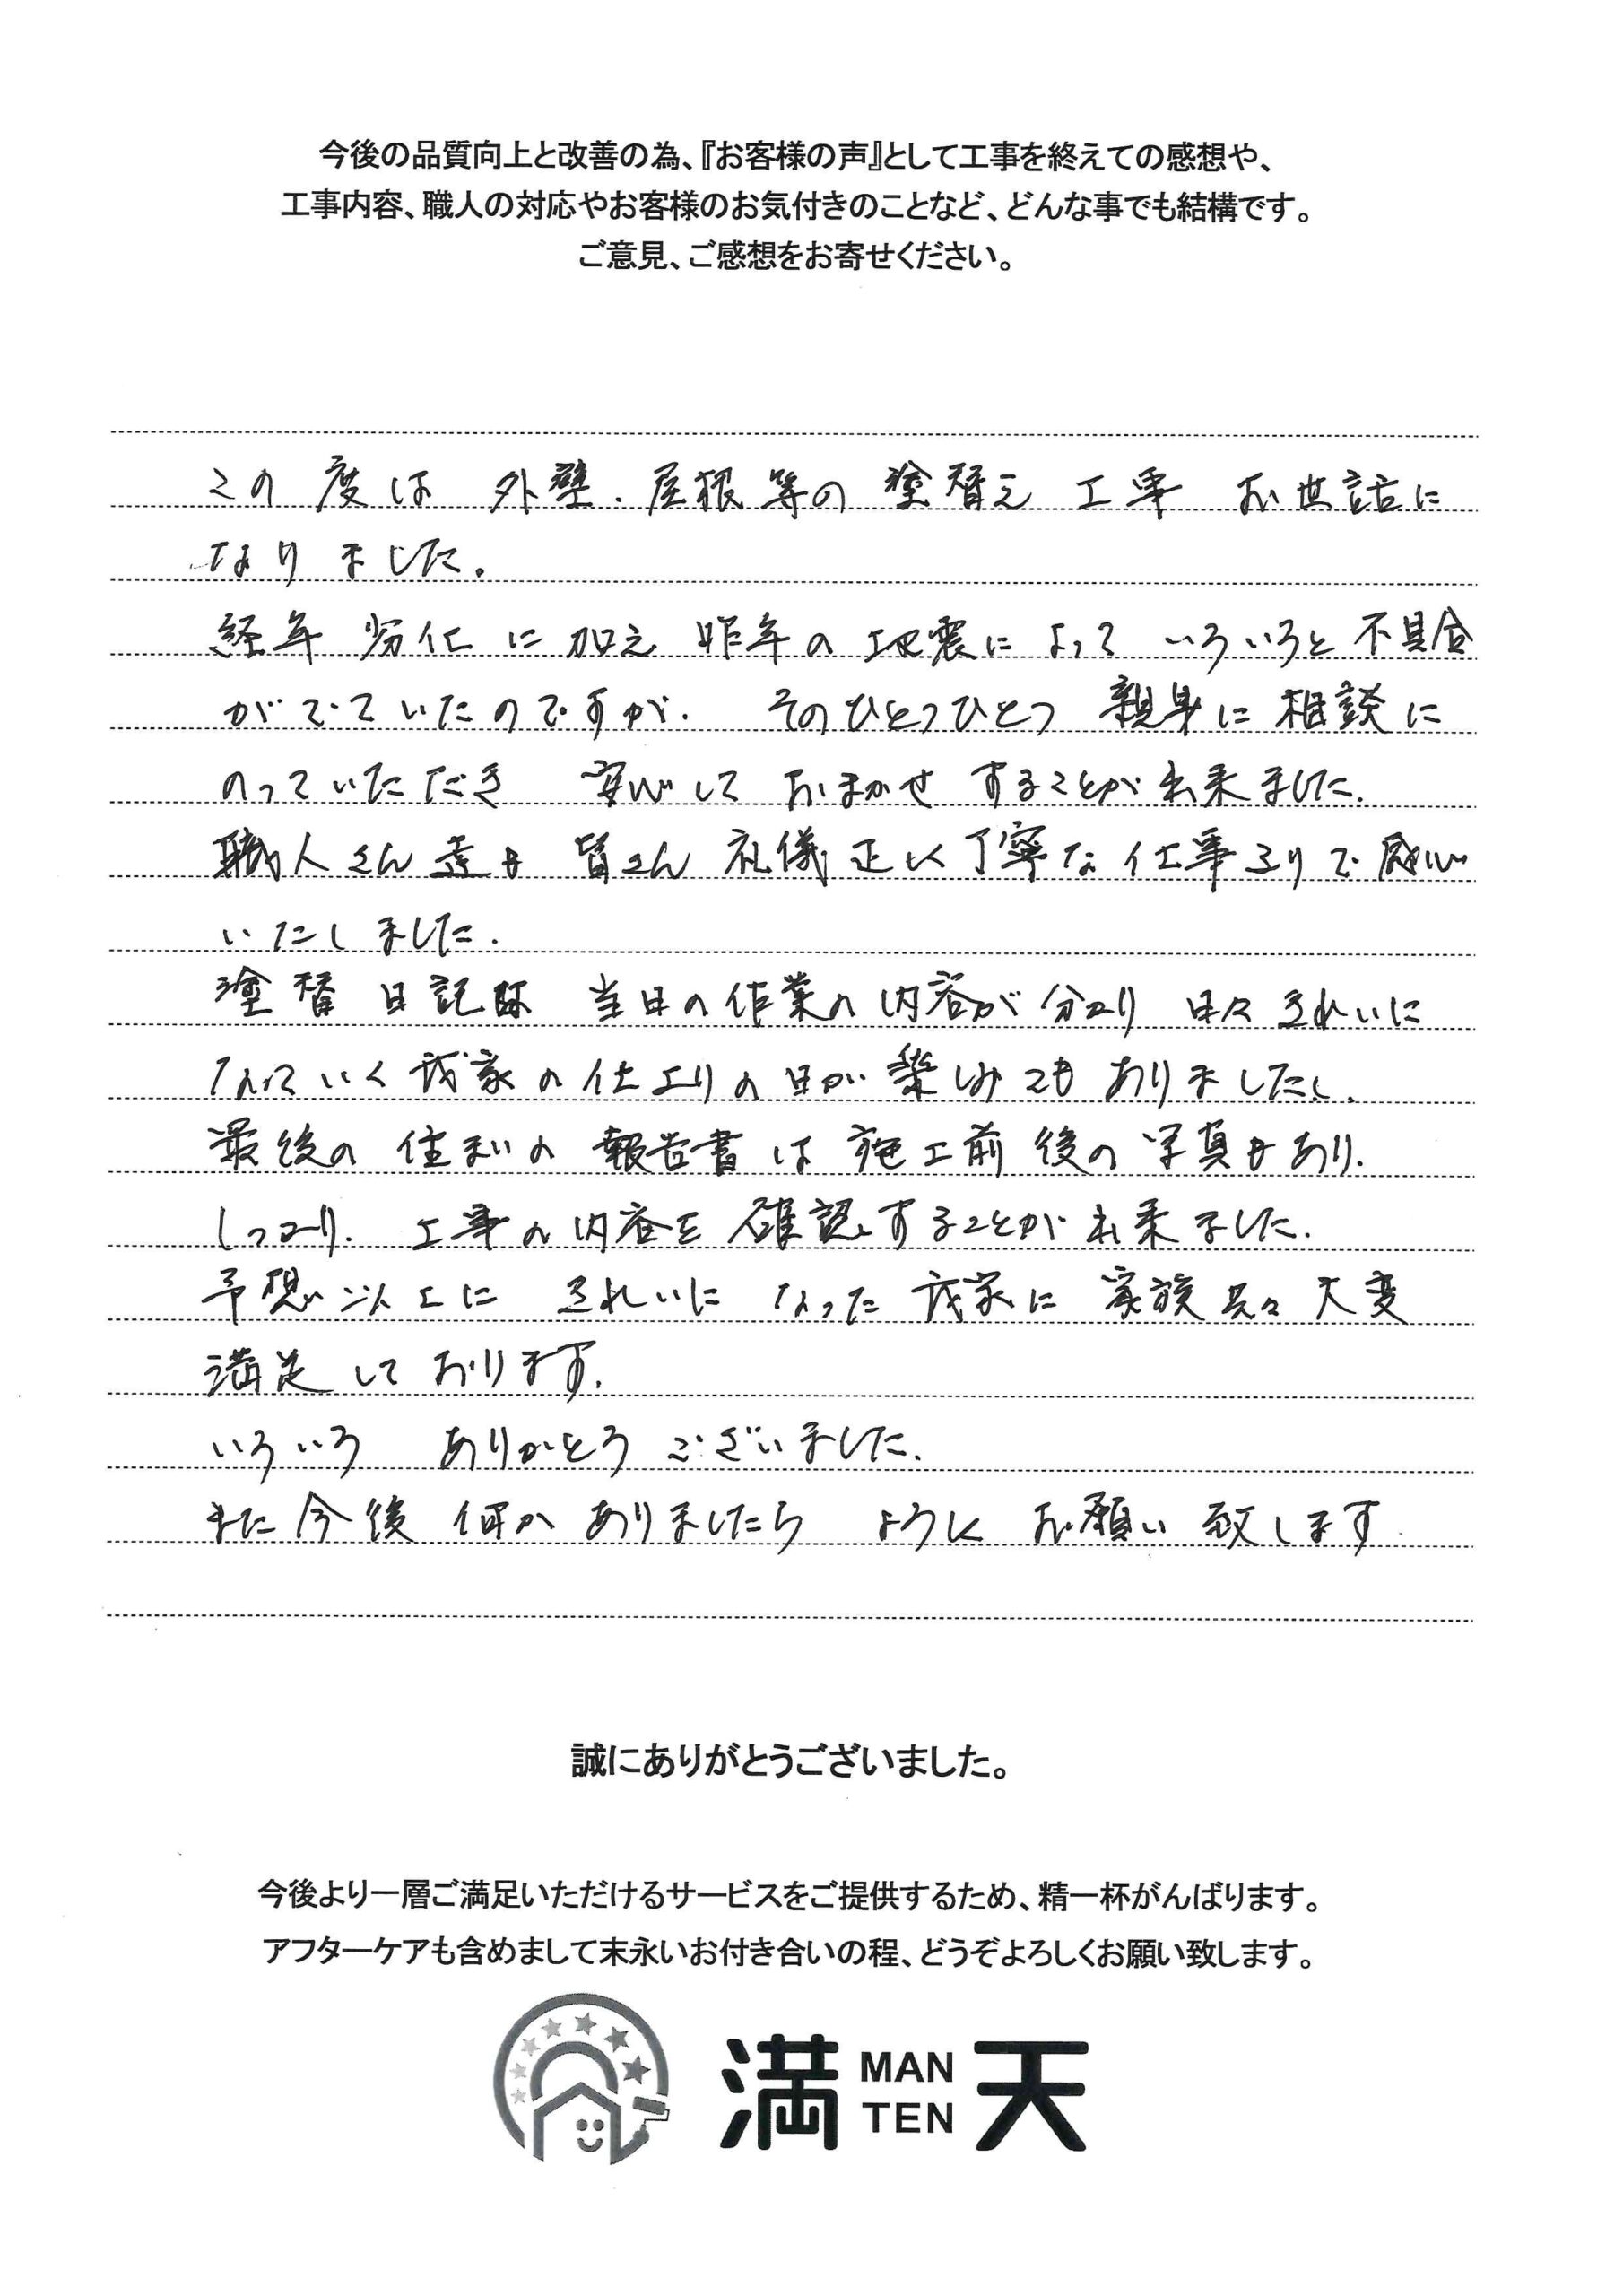 今後の品質向上と改善の為、『お客様の声』として工事を終えての感想や、
工事内容、職人の対応やお客様のお気付きのことなど、どんな事でも結構です。
ご意見、ご感想をお寄せください。
この度は 外壁・屋根等の 塗替え 工事 お世話に
なりました。
経年 劣化 に 加え 昨年の 地震に よって いろいろと 不具合
が でていたのですが、 そのひとつひとつ 親身に 相談に
のっていただき 安心して おまかせ することが出来ました。
職人さん達も 皆さん 礼儀正しく 丁寧な 仕事ぶりで 感心
いたしました。
塗替 日記は 当日の作業の 内容が 分かり 日々 きれいに
なっていく 我家の 仕上りの 日が 楽しみでも ありましたし、
最後の 住まいの 報告書は 施工前後の 写真もあり、
しっかり、 工事の内容を 確認することが出来ました。
予想以上に きれいに なった 我家に 家族共々 大変
満足して おります。
いろいろ ありがとう ございました。
また 今後 何か ありましたら よろしく お願い致します
誠にありがとうございました。
今後より一層ご満足いただけるサービスをご提供するため、精一杯がんばります。
アフターケアも含めまして末永いお付き合いの程、どうぞよろしくお願い致します。
満 MAN TEN 天